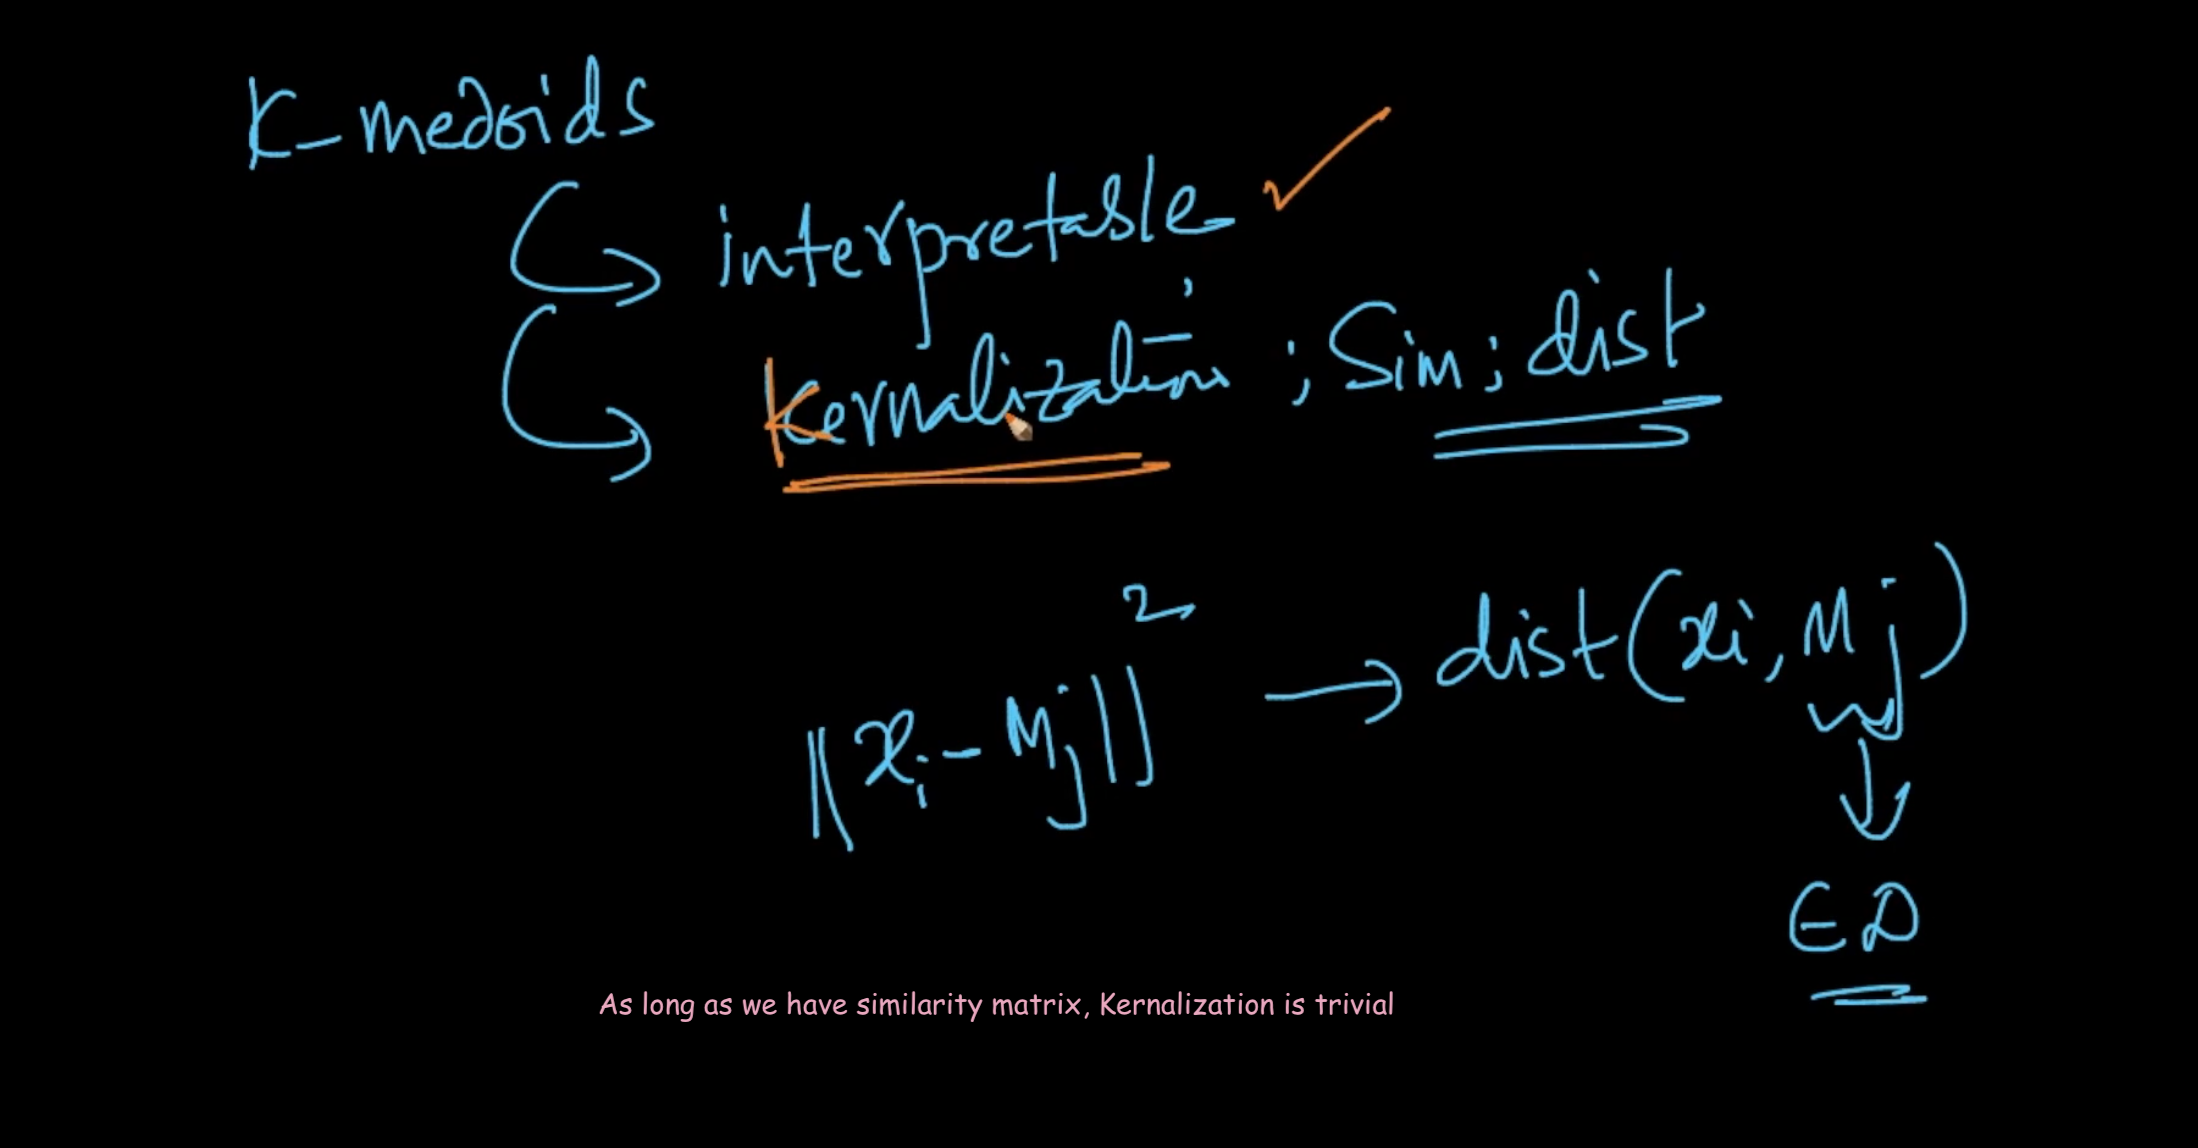 K-medoids
interpretable ✓
Kernalization ; Sim ; dist
||xi - Mj||² → dist(xi, Mj)
∈ D
As long as we have similarity matrix, Kernalization is trivial